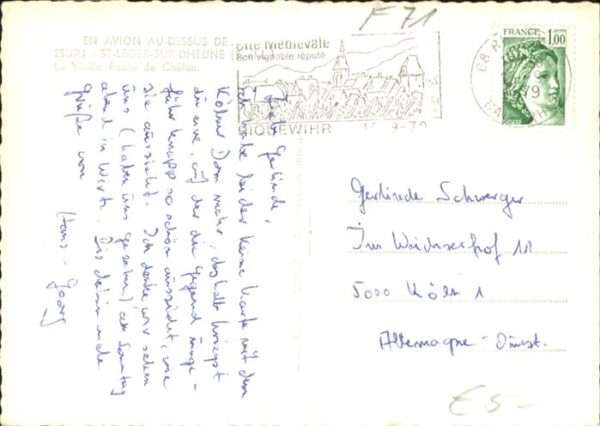 F 71
EN AVION AU-DESSUS DE
ST-LEGER-SUR-DHEUNE
La Vieille Route de Chalon
Cité Médiévale
Son vignoble réputé
RIQUEWIHR
-9-79
68 R
79
FRANCE
1,00
Liebe Gerlinde,
ich habe leider keine Karte mit dem
Kölner Dom mehr, deshalb kriegst
du eine, auf der die Gegend unge-
fähr knapp so schön aussieht, wie
sie aussieht. Ich denke wir sehen
uns (haben uns gesehen) am Sonntag
abend in Wart. Bis dahin viele
Grüße von
Hans-Georg
Gerlinde Schwerger
Im 11
5000 Köln 1
Allemagne-Ouest.
€ 5-